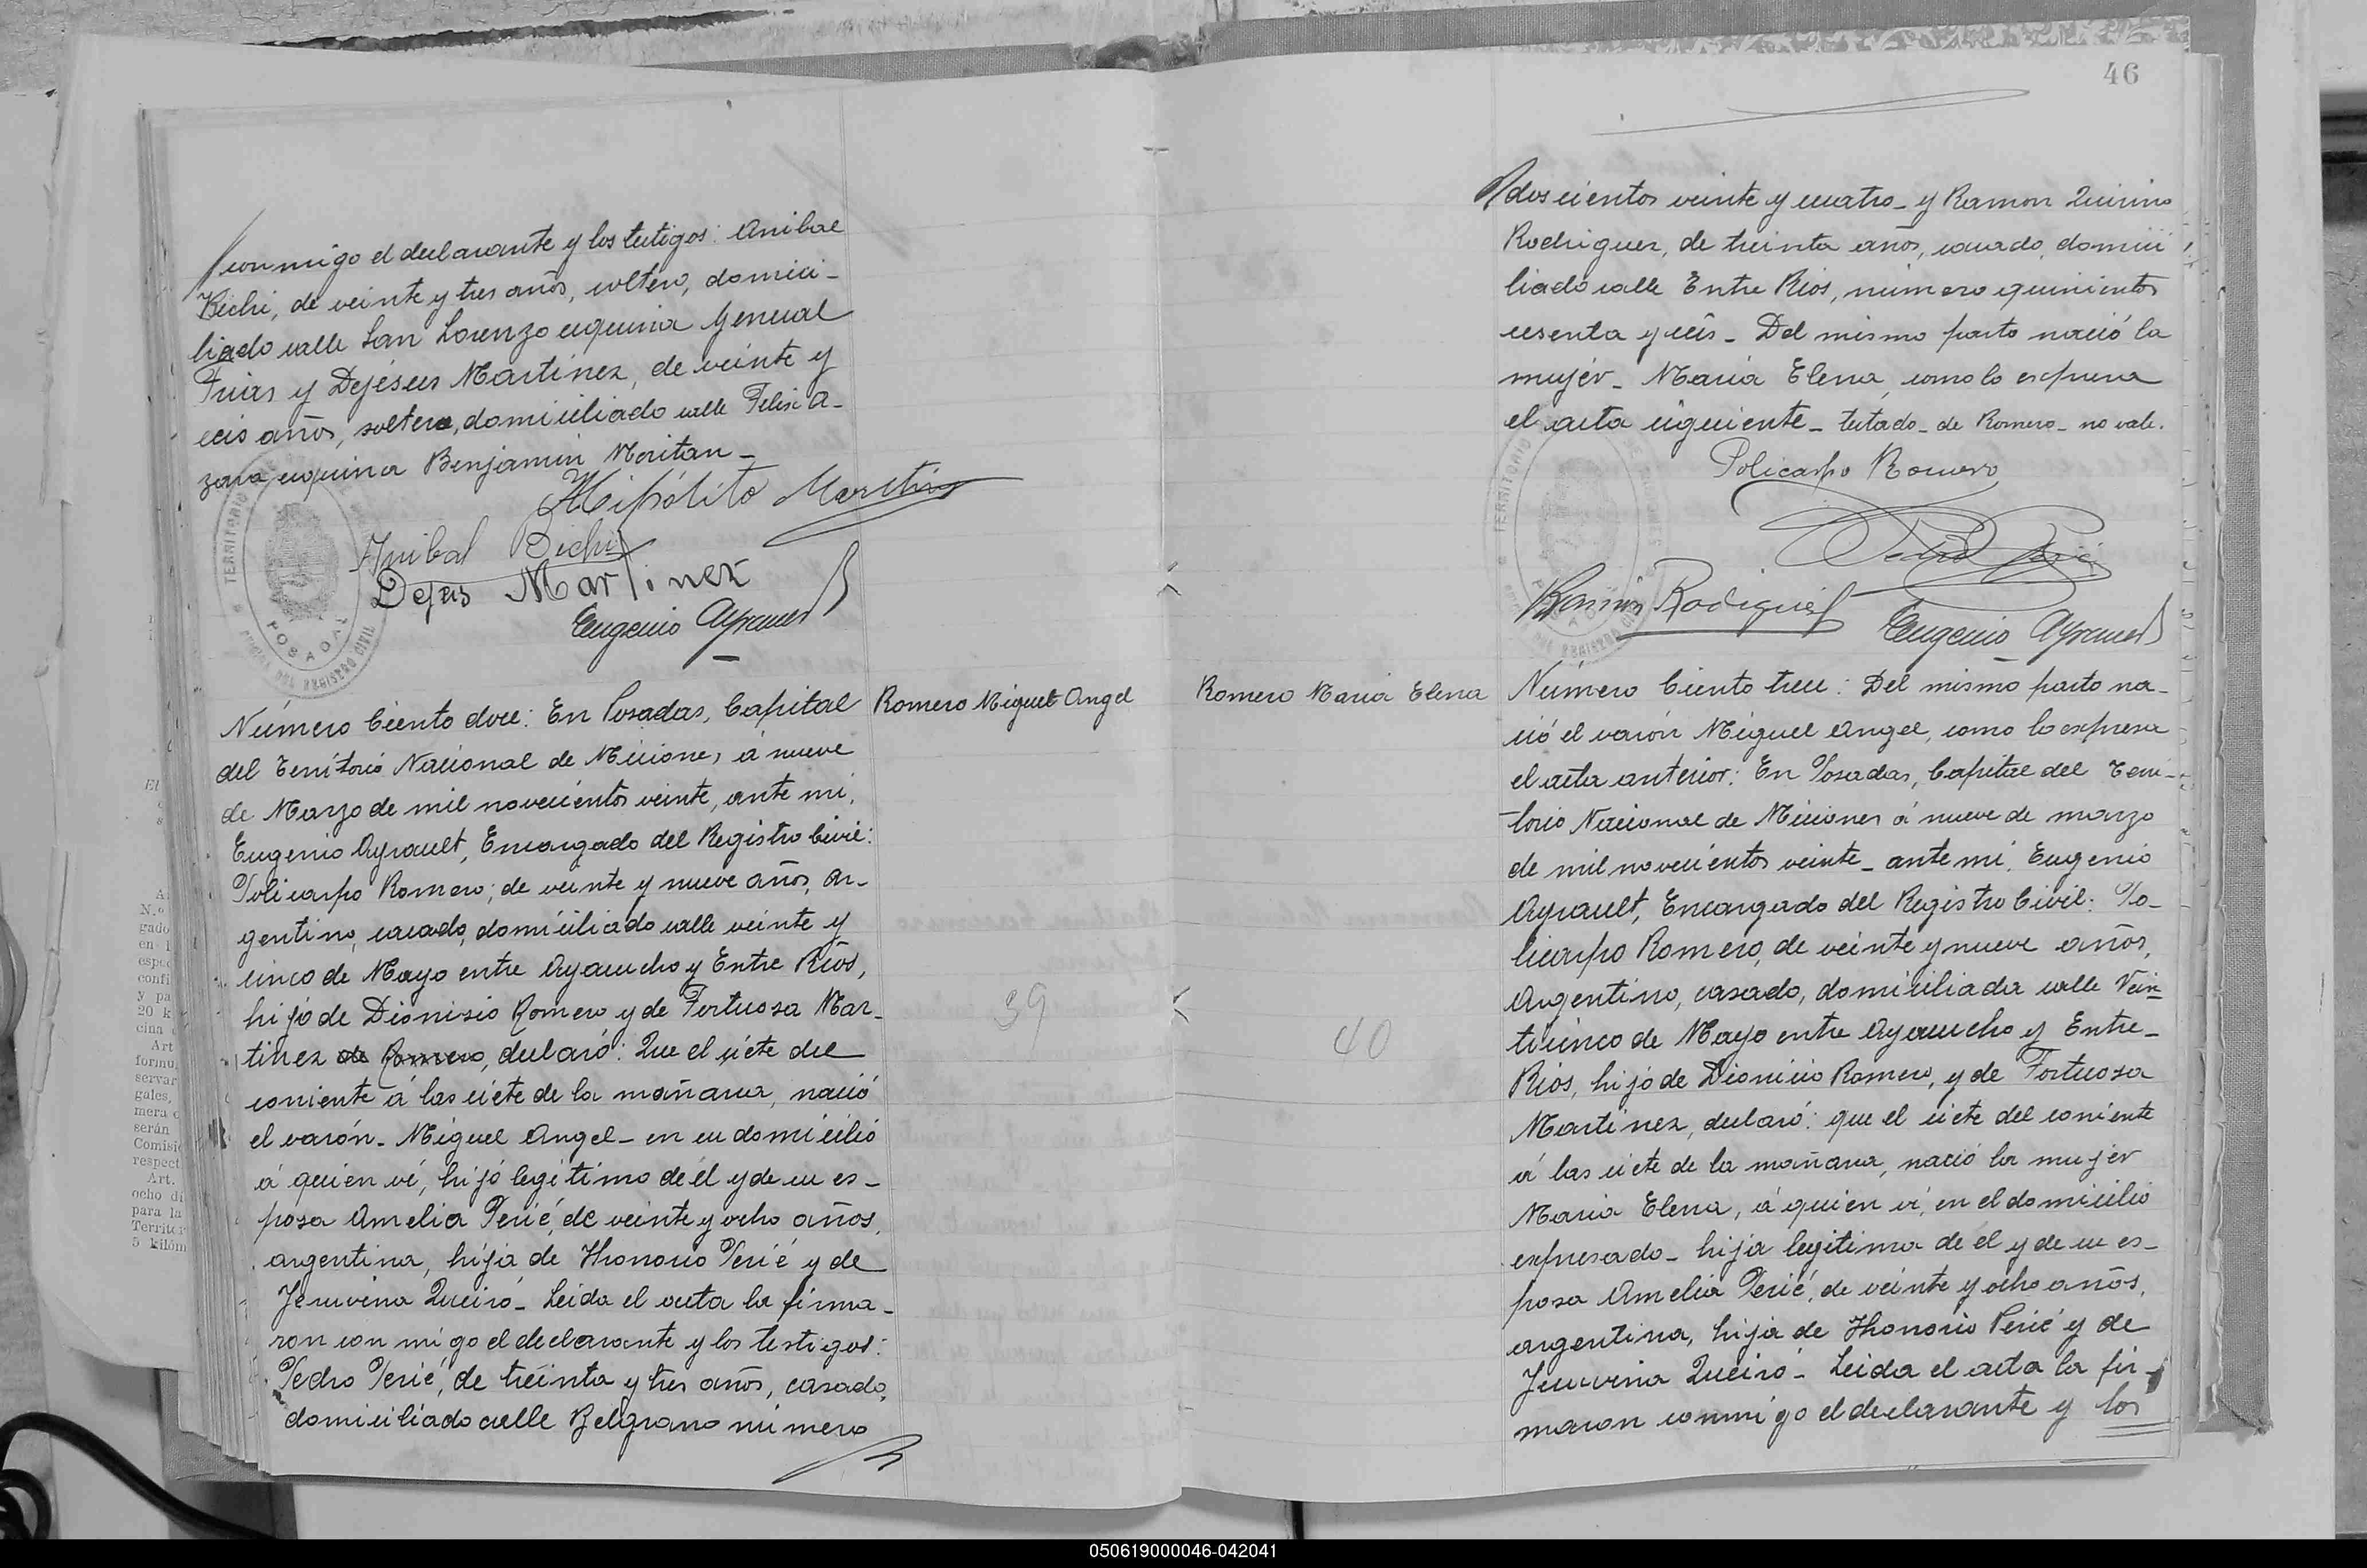 conmigo el declarante y los testigos: Anibal
Bichi, de veinte y tres años, soltero, domici-
liado calle San Lorenzo esquina General
Frias y Dejésus Martinez, de veinte y
seis años, soltero, domiciliado calle Felix A-
zara esquina Benjamin Moritan-
Hipólito Martinez
Anibal Bichi
Dejesus Martinez
Eugenio Ayrault
TERRITORIO
POSADAS
DEL REGISTRO CIVIL
Número Ciento doce: En Posadas, Capital
del Territorio Nacional de Misiones á nueve
de Marzo de mil novecientos veinte, ante mi,
Eugenio Ayrault, Encargado del Registro Civil:
Policarpo Romero; de veinte y nueve años, ar-
gentino, casado, domiciliado calle veinte y
cinco de Mayo entre Ayacucho y Entre Rios,
hijo de Dionisio Romero y de Fortuosa Mar-
tinez de Romero, declaró: Que el siete del
corriente á las siete de la mañana, nació
el varón- Miguel Angel- en su domicilio
á quien vi, hijo legitimo de él y de su es-
posa Amelia Perié, de veinte y ocho años,
argentina, hija de Honorio Perié y de
Jenuvena Queiró- Leida el acta la firma-
ron con migo el declarante y los testigos:
Pedro Perié, de treinta y tres años, casado,
domiciliado calle Belgrano número
Romero Miguel Angel
39
46
doscientos veinte y cuatro- y Ramon Quirino
Rodriguez, de treinta años, casado, domici
liado calle Entre Rios, número quinientos
sesenta y seis- Del mismo parto nació la
mujér- Maria Elena, como lo expresa
el acta siguiente- testado- de Romero- no vale.
Policarpo Romero
Pedro Perié
Ramón Rodriguez
Eugenio Ayrault
TERRITORIO
DEL REGISTRO CIVIL
Romero Maria Elena
40
Número Ciento trece: Del mismo parto na-
ció el varón Miguel Angel, como lo expresa
el acta anterior: En Posadas, Capital del Terri-
torio Nacional de Misiones á nueve de marzo
de mil novecientos veinte- ante mi, Eugenio
Ayrault, Encargado del Registro Civil: Po-
licarpo Romero, de veinte y nueve años,
Argentino, casado, domiciliada calle Vein
ticinco de Mayo entre Ayacucho y Entre-
Rios, hijo de Dionicio Romero, y de Fortuosa
Martinez, declaró: que el siete del corriente
á las siete de la mañana, nació la mujer
Maria Elena, á quien vi, en el domicilio
expresado- hija legitima de el y de su es-
posa Amelia Perié, de veinte y ocho años,
argentina, hija de Honorio Perié y de
Jenuvena Queiró- Leida el acta la fir-
maron conmigo el declarante y los
050619000046-042041